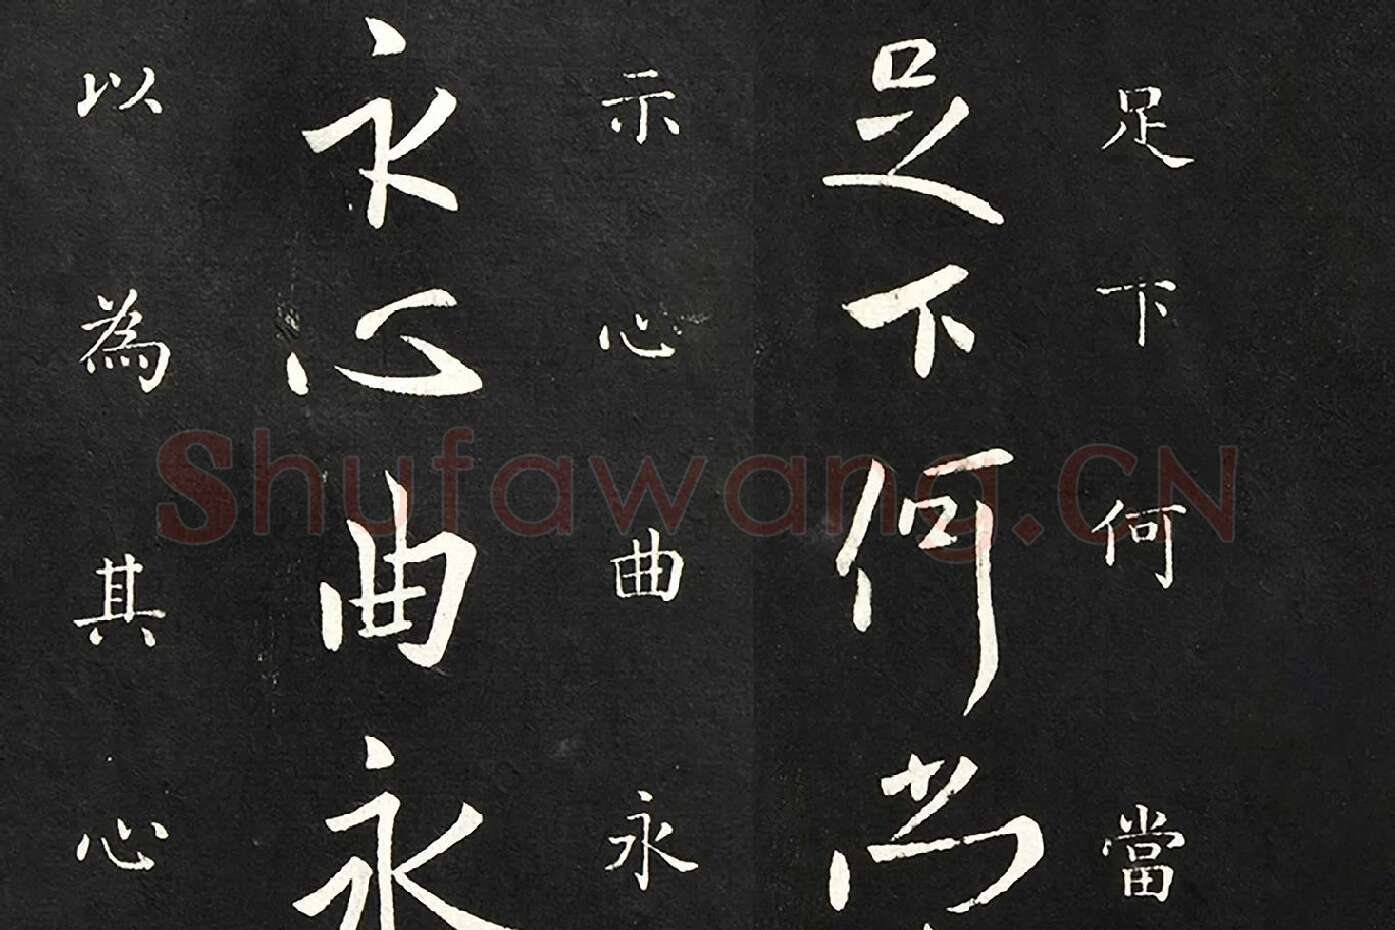 足下何當
足下何當
示心曲永
永心曲永
以為其心
Shufawang.CN